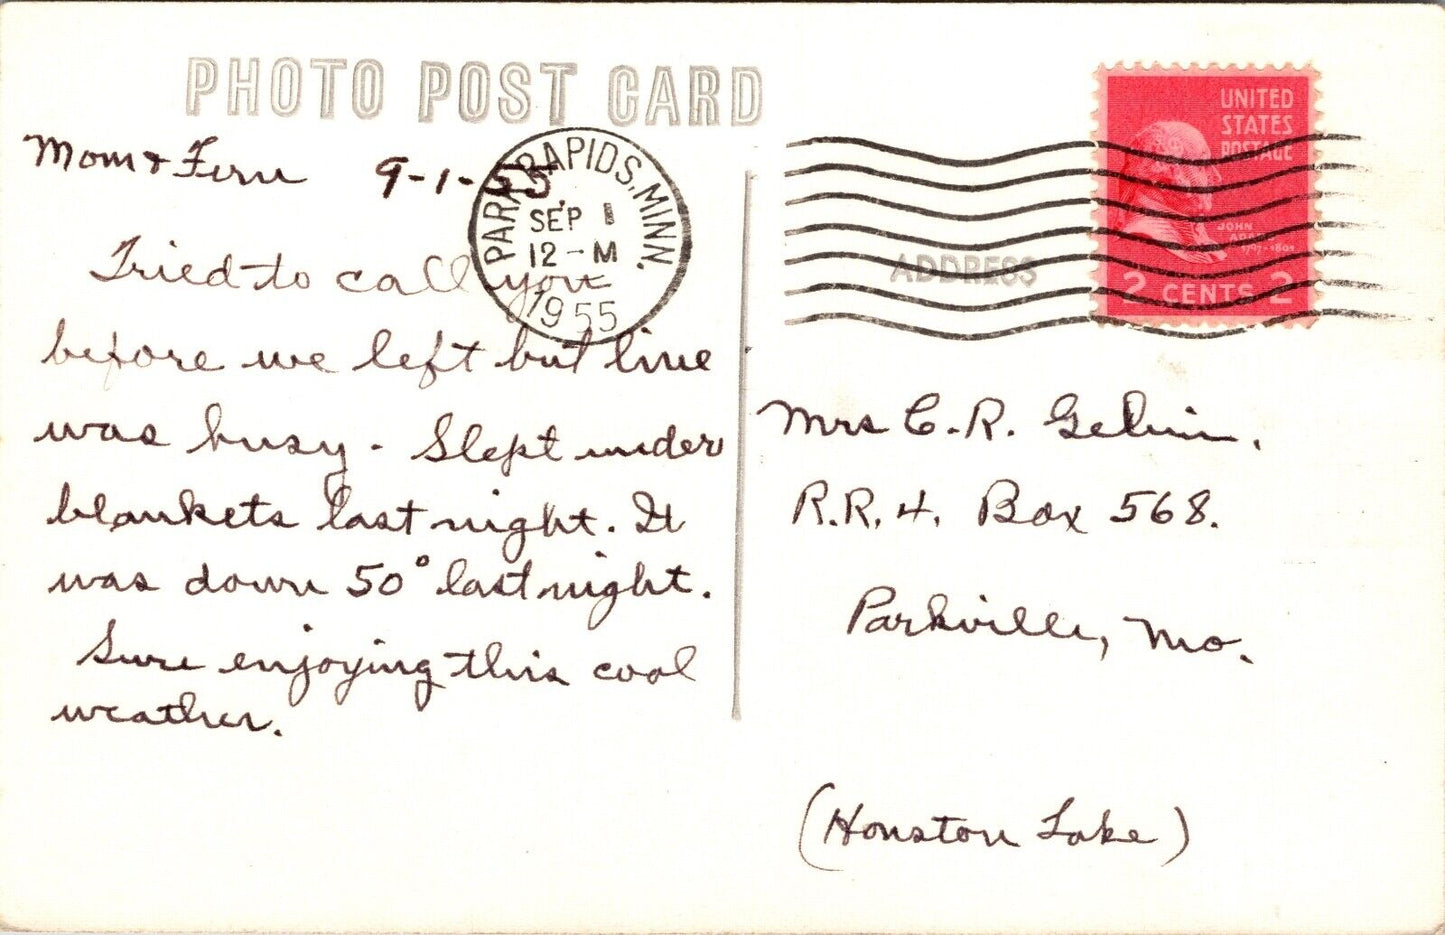 PHOTO POST CARD
Mom & Fern 9-1-55
PARK RAPIDS, MINN.
SEP 1
12-M
1955
Tried to call you
before we left but line
was busy - Slept under
blankets last night. It
was down 50° last night.
Sure enjoying this cool
weather.
UNITED
STATES
POSTAGE
JOHN
ADAMS
1797-1801
2 CENTS 2
ADDRESS
Mrs C.R. Gelvin,
R.R. 4. Box 568.
Parkville, Mo.
(Houston Lake)